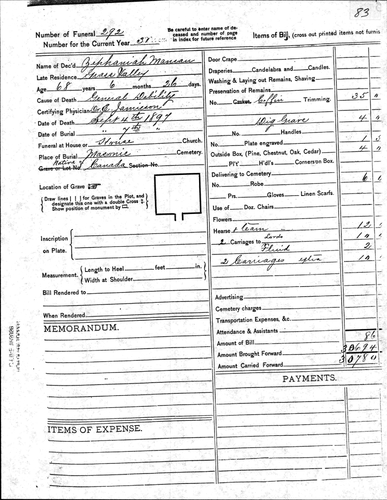 83
Number of Funeral 292
Number for the Current Year 31
Be carefull to enter name of deceased and number of page in index for future reference
Items of Bill, (cross out printed items not furnis
Name of Dec'd Zephaniah
Late Residence Grass Valley
Age 68 years 6 months 26 days.
Cause of Death General Debility
Certifying Physician Jamieson
Date of Death Sept 4th 1897
Date of Burial " 7th "
Funeral at House or Church.
Place of Burial Masonic Cemetery.
Native of
Grave or Lot No. Canada Section No.
Location of Grave
Draw lines | | for Graves in the Plot, and
designate this one with a double Cross
Show position of monument by
Inscription
on Plate.
Measurement. Length to Heel feet in.
Width at Shoulder
Bill Rendered to
When Rendered
MEMORANDUM.
ITEMS OF EXPENSE.
Door Crape
Draperies Candelabra and Candles.
Washing & Laying out Remains, Shaving
Preservation of Remains
No Casket Coffin Trimming. 35
Dig Grave 4
No. Handles
Plate engraved 1
Outside Box (Pine, Chestnut, Oak, Cedar) 4
PIY H'dl's Cornerson Box.
Delivering to Cemetery 6
No. Robe
Prs. Gloves Linen Scarfs.
Use of Doz. Chairs
Flowers
Hearse & team 12
2 Carriages to
2
2 Carriages extra
Advertising
Cemetery charges
Transportation Expenses, &c.
Attendance & Assistants
86
Amount of Bill
Amount Brought Forward 30694
Amount Carried Forward 30780
PAYMENTS.